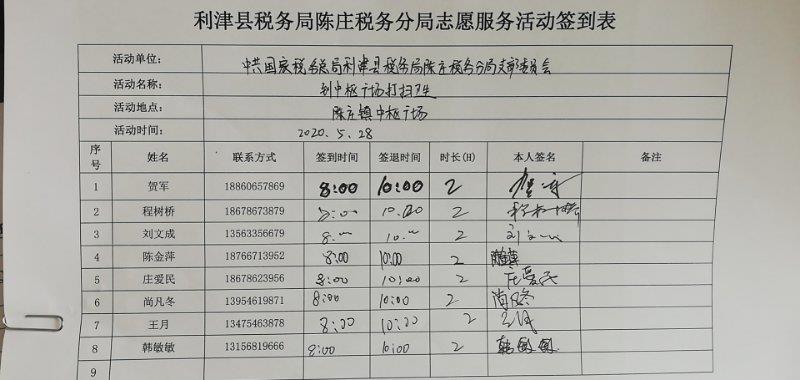 利津县税务局陈庄税务分局志愿服务活动签到表
活动单位： 中共国家税务总局利津县税务局陈庄税务分局支部委员会
活动名称： 到中枢广场打扫卫生
活动地点： 陈庄镇中枢广场
活动时间： 2020.5.28
序号 姓名 联系方式 签到时间 签退时间 时长(H) 本人签名 备注
1 贺军 18860657869 8:00 10:00 2 贺军
2 程树桥 18678673879 8:00 10:00 2 程树桥
3 刘文成 13563355679 8:00 10:00 2
4 陈金萍 18766713952 8:00 10:00 2
5 庄爱民 18678623956 8:00 10:00 2 庄爱民
6 尚凡冬 13954619871 8:00 10:00 2 尚凡冬
7 王月 13475463878 8:00 10:00 2 王月
8 韩敏敏 13156819666 8:00 10:00 2 韩敏敏
9